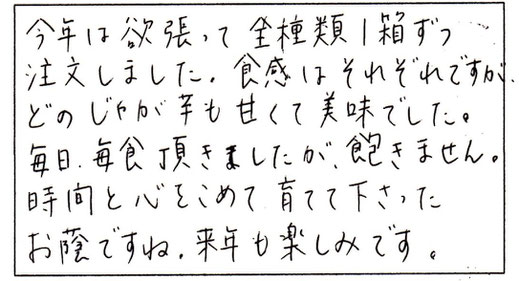 今年は欲張って全種類1箱ずつ
注文しました。食感はそれぞれですが、
どのじゃが芋も甘くて美味でした。
毎日、毎食頂きましたが、飽きません。
時間と心をこめて育てて下さった
お蔭ですね。来年も楽しみです。